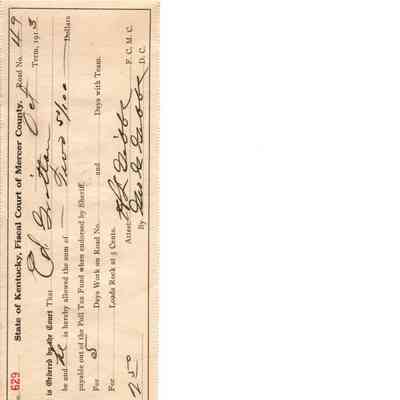 No. 629 State of Kentucky, Fiscal Court of Mercer County, Road No. 49
Oct Term, 1913
is Ordered by the Court That Ed
be and he is hereby allowed the sum of Two 50/100 Dollars
payable out of the Poll Tax Fund when endorsed by Sheriff.
For 5 Days Work on Road No. and Days with Team.
For Loads Rock at 5 Cents.
Attest: F. C. M. C.
2 50 By D. C.